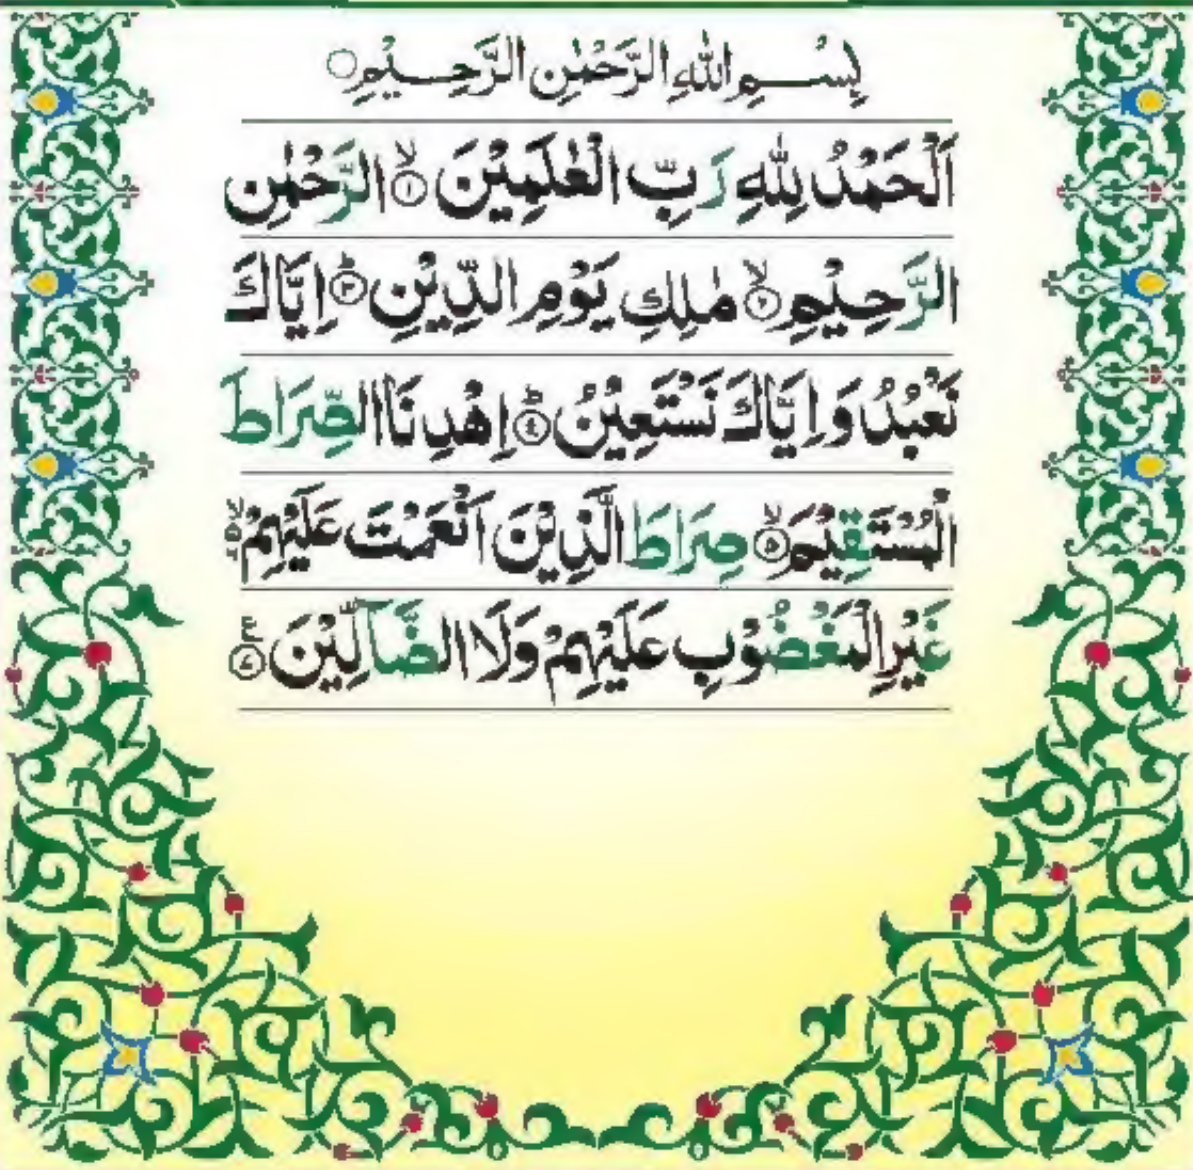 بِسْــــمِ اللّٰهِ الرَّحْمٰنِ الرَّحِــــيْمِ ○
اَلْحَمْدُ لِلّٰهِ رَبِّ الْعٰلَمِيْنَ ۙ‏﴿۱﴾ الرَّحْمٰنِ
الرَّحِيْمِ ۙ‏﴿۲﴾ مٰلِكِ يَوْمِ الدِّيْنِ ؕ‏﴿۳﴾ اِيَّاكَ
نَعْبُدُ وَ اِيَّاكَ نَسْتَعِيْنُ ؕ‏﴿٤﴾ اِهْدِنَا الصِّرَاطَ
الْمُسْتَقِيْمَ ۙ‏﴿۵﴾ صِرَاطَ الَّذِيْنَ اَنْعَمْتَ عَلَيْهِمْ ۙ
غَيْرِ الْمَغْضُوْبِ عَلَيْهِمْ وَلَا الضَّآلِّيْنَ ﴿۷﴾